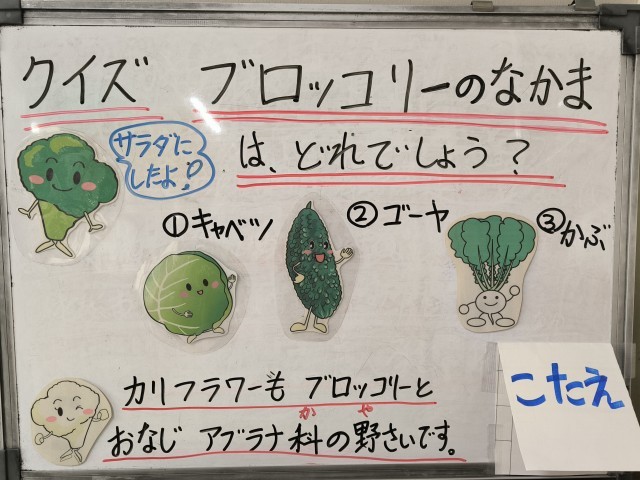 クイズ ブロッコリーのなかま
は、どれでしょう?
サラダに
したよ!
①キャベツ
②ゴーヤ
③かぶ
カリフラワーも ブロッコリーと
か や
おなじ アブラナ科の野さいです。
こたえ